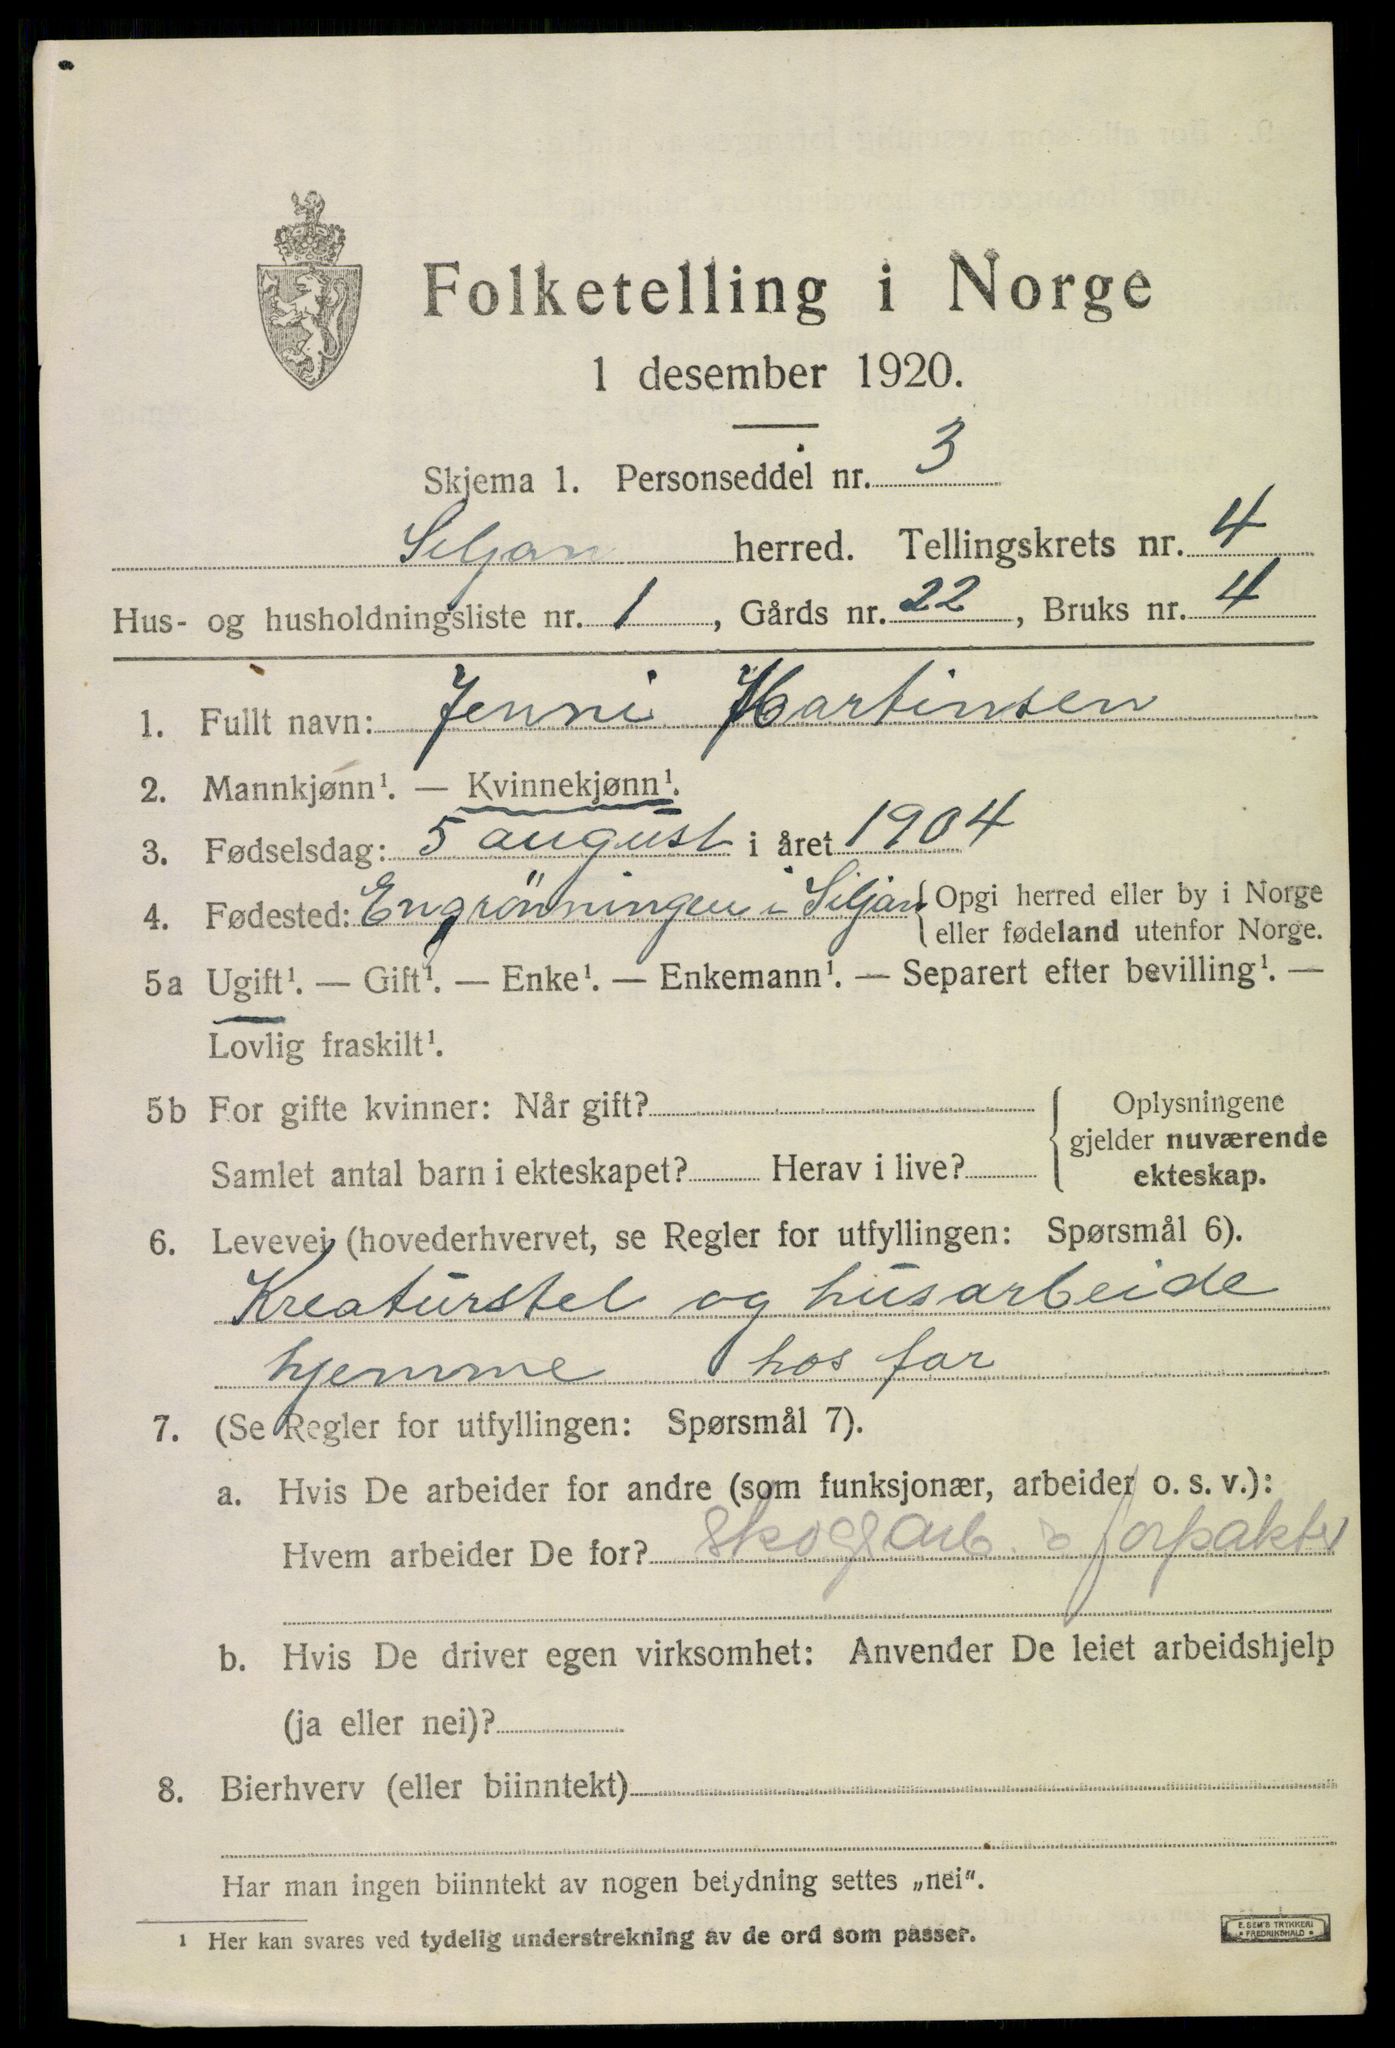 Folketelling i Norge
1 desember 1920.
Skjema 1. Personseddel nr. 3
Siljan herred. Tellingskrets nr. 4
Hus- og husholdningsliste nr. 1, Gårds nr. 22, Bruks nr. 4
1. Fullt navn: Jenni Martinsen
2. Mannkjønn¹. — Kvinnekjønn¹.
3. Fødselsdag: 5 august i året 1904
4. Fødested: Engrönningen i Siljan { Opgi herred eller by i Norge
eller fødeland utenfor Norge.
5a Ugift¹. — Gift¹. — Enke¹. — Enkemann¹. — Separert efter bevilling¹. —
Lovlig fraskilt¹.
5b For gifte kvinner: Når gift?
Samlet antal barn i ekteskapet? Herav i live?
Oplysningene
gjelder nuværende
ekteskap.
6. Levevei (hovederhvervet, se Regler for utfyllingen: Spørsmål 6).
Kreaturstel og husarbeide
hjemme hos far
7. (Se Regler for utfyllingen: Spørsmål 7).
a. Hvis De arbeider for andre (som funksjonær, arbeider o. s. v.):
Hvem arbeider De for? skogsarb. o forpakter
b. Hvis De driver egen virksomhet: Anvender De leiet arbeidshjelp
(ja eller nei)?
8. Bierhverv (eller biinntekt)
Har man ingen biinntekt av nogen betydning settes „nei“.
¹ Her kan svares ved tydelig understrekning av de ord som passer.
E. SEM'S TRYKKERI
FREDRIKSHALD